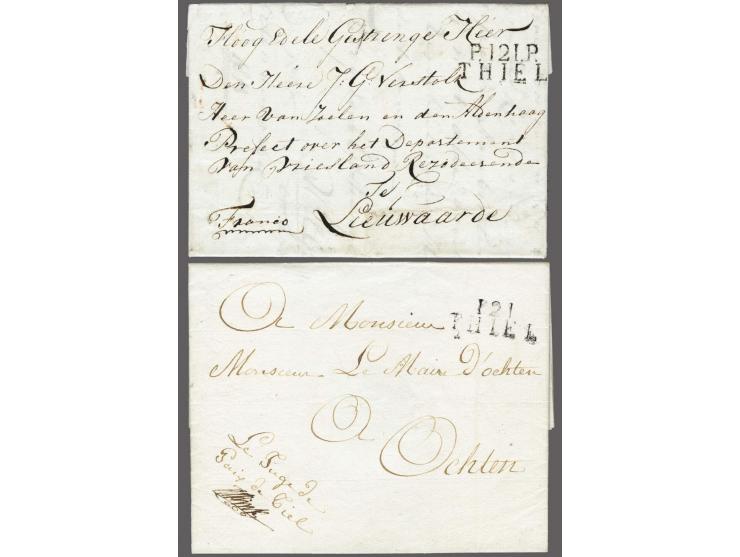 Hoog Edele Gestrenge Heer
P.121.P.
THIEL
Den Heere J: G Verstolk
Heer van Zoelen en den Aldenhaag
Prefect over het Departement
van Vriesland Rezodeerende
Te
Leeuwaarde
Franco
P21
THIEL
A Monsieur
Monsieur Le Maire D'ochten
A
Ochten
Le Juge de
Paix de Tiel